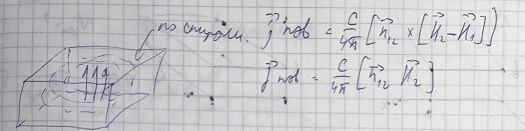 по спирали. j⃗ пов = c/4π [n⃗₁₂ × [H⃗₂ − H⃗₁]]
j⃗ пов = c/4π [n⃗₁₂ H⃗₂]